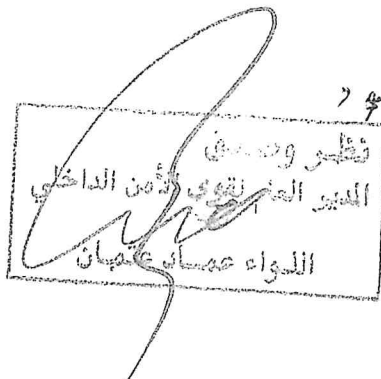 نظر و
المدير العام لقوى الأمن الداخلي
اللواء عماد عثمان